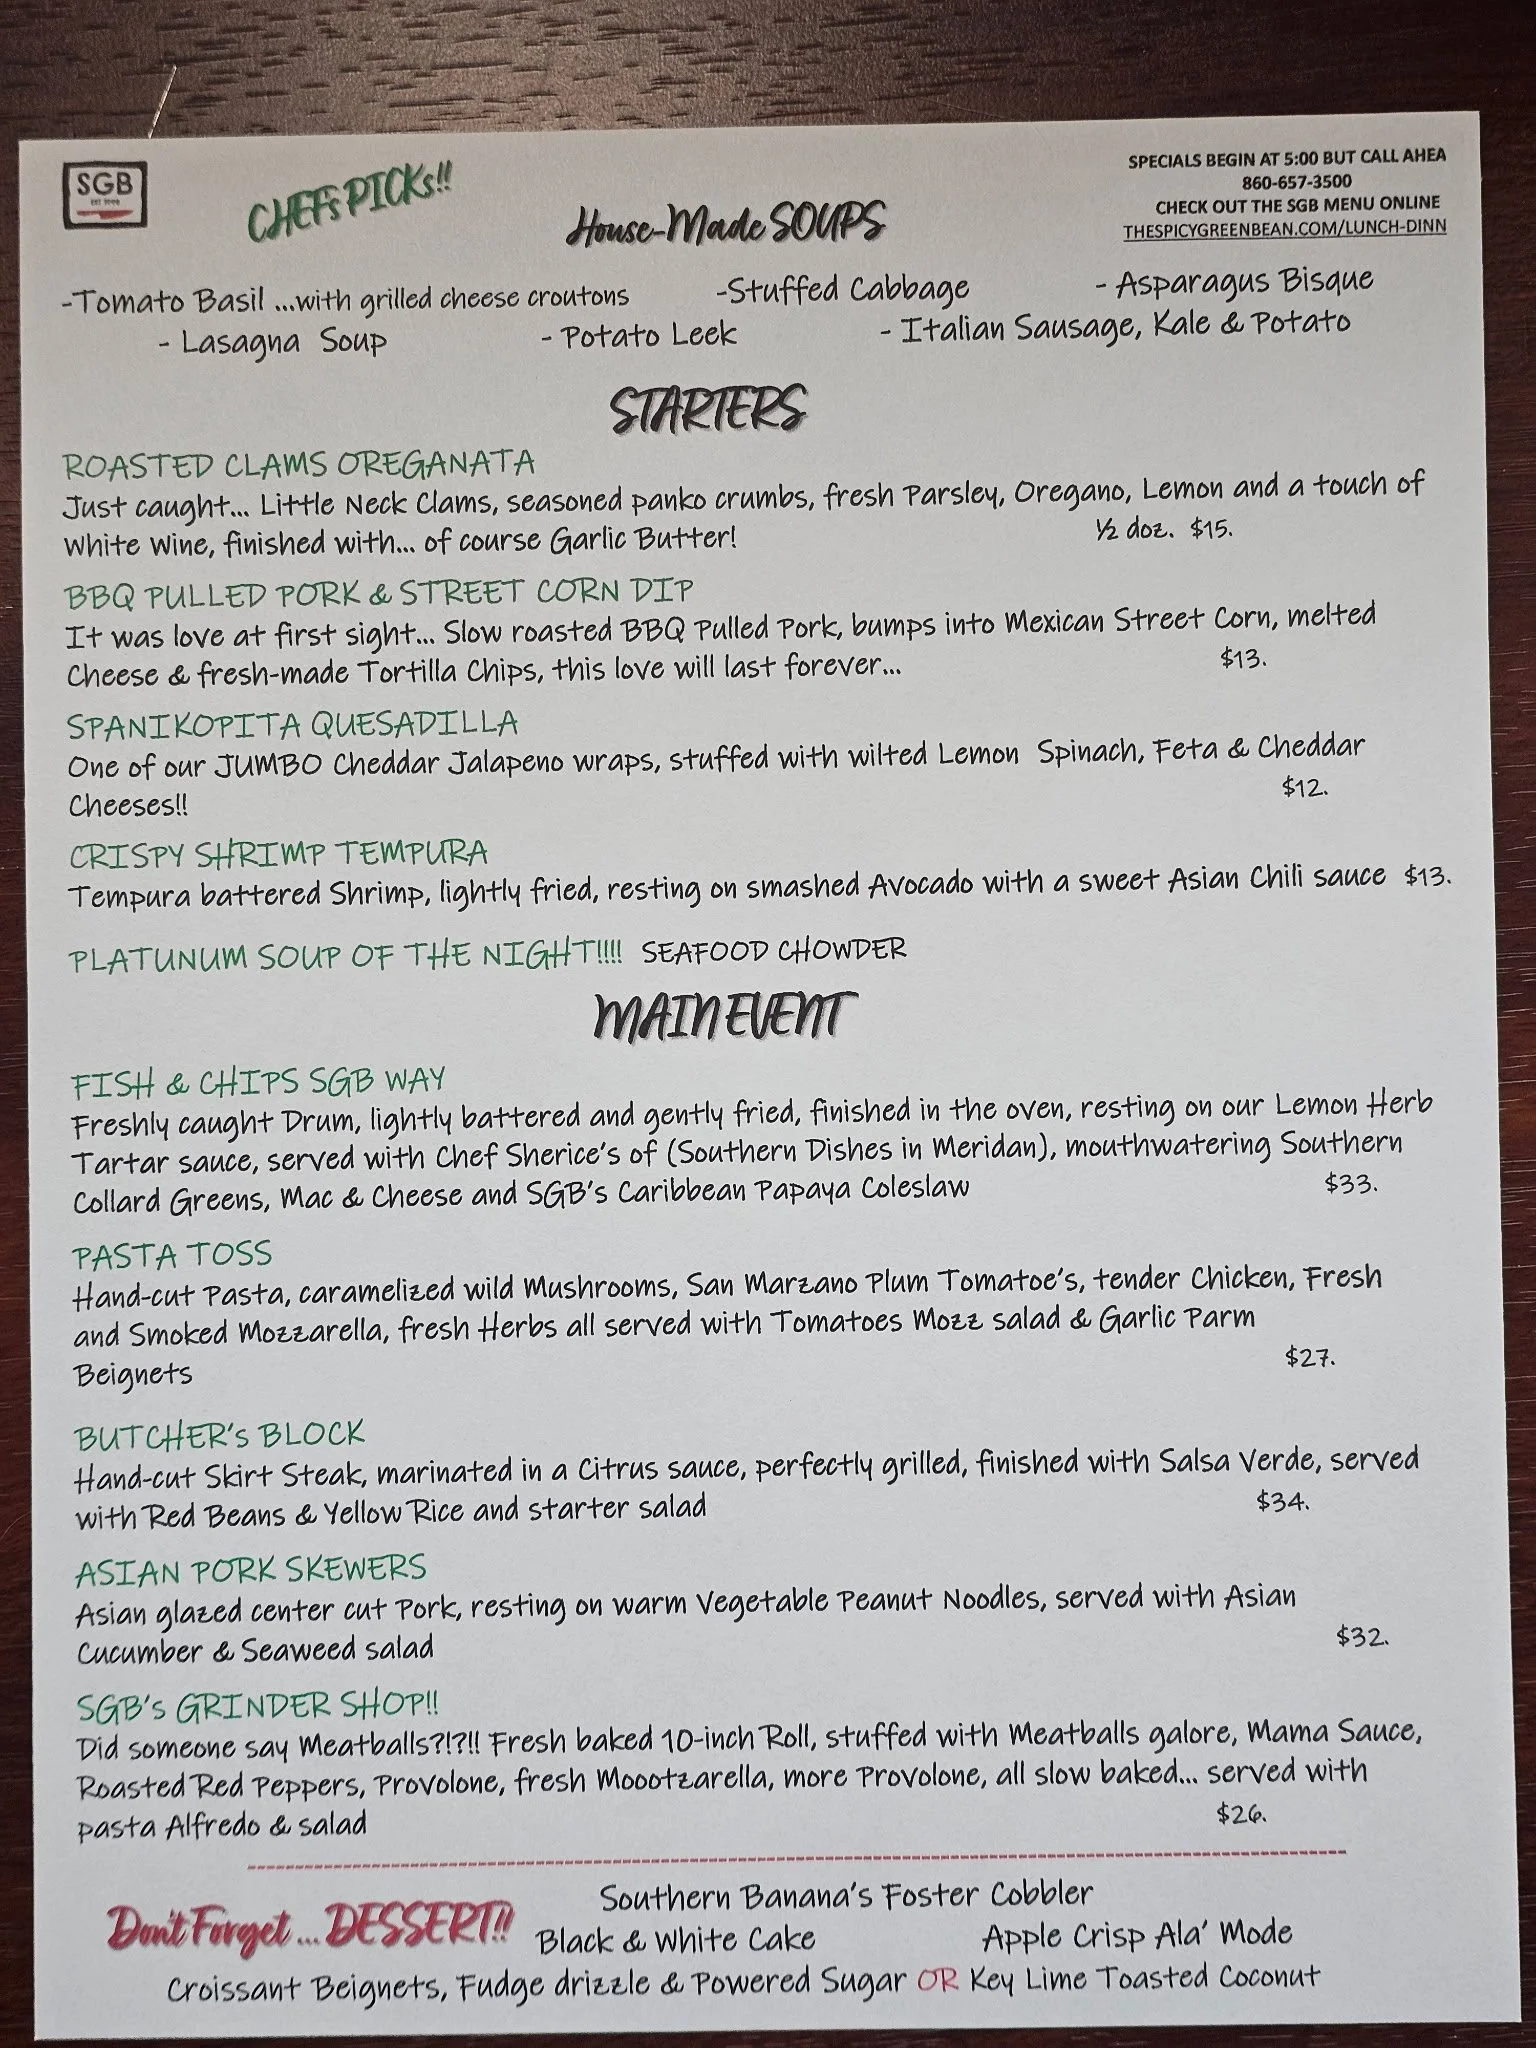 SGB
CHEFs PICKs!!
SPECIALS BEGIN AT 5:00 BUT CALL AHEA
860-657-3500
CHECK OUT THE SGB MENU ONLINE
THESPICYGREENBEAN.COM/LUNCH-DINN
House-Made SOUPS
-Tomato Basil ...with grilled cheese croutons -Stuffed Cabbage - Asparagus Bisque
- Lasagna Soup - Potato Leek - Italian Sausage, Kale & Potato
STARTERS
ROASTED CLAMS OREGANATA
Just caught... Little Neck Clams, seasoned panko crumbs, fresh Parsley, Oregano, Lemon and a touch of
White Wine, finished with... of course Garlic Butter! ½ doz. $15.
BBQ PULLED PORK & STREET CORN DIP
It was love at first sight... Slow roasted BBQ Pulled Pork, bumps into Mexican Street Corn, melted
Cheese & fresh-made Tortilla Chips, this love will last forever... $13.
SPANIKOPITA QUESADILLA
One of our JUMBO Cheddar Jalapeno wraps, stuffed with wilted Lemon Spinach, Feta & Cheddar
Cheeses!! $12.
CRISPY SHRIMP TEMPURA
Tempura battered Shrimp, lightly fried, resting on smashed Avocado with a sweet Asian Chili sauce $13.
PLATUNUM SOUP OF THE NIGHT!!!! SEAFOOD CHOWDER
MAIN EVENT
FISH & CHIPS SGB WAY
Freshly caught Drum, lightly battered and gently fried, finished in the oven, resting on our Lemon Herb
Tartar sauce, served with Chef Sherice's of (Southern Dishes in Meridan), mouthwatering Southern
Collard Greens, Mac & Cheese and SGB's Caribbean Papaya Coleslaw $33.
PASTA TOSS
Hand-cut Pasta, caramelized wild Mushrooms, San Marzano Plum Tomatoe's, tender Chicken, Fresh
and Smoked Mozzarella, fresh Herbs all served with Tomatoes Mozz salad & Garlic Parm
Beignets $27.
BUTCHER's BLOCK
Hand-cut Skirt Steak, marinated in a Citrus sauce, perfectly grilled, finished with Salsa Verde, served
with Red Beans & Yellow Rice and starter salad $34.
ASIAN PORK SKEWERS
Asian glazed center cut Pork, resting on warm Vegetable Peanut Noodles, served with Asian
Cucumber & Seaweed salad $32.
SGB's GRINDER SHOP!!
Did someone say Meatballs?!?!! Fresh baked 10-inch Roll, stuffed with Meatballs galore, Mama Sauce,
Roasted Red Peppers, Provolone, fresh Moootzarella, more Provolone, all slow baked... served with
pasta Alfredo & salad $26.
Don't Forget ... DESSERT!!
Southern Banana's Foster Cobbler
Black & White Cake Apple Crisp Ala' Mode
Croissant Beignets, Fudge drizzle & Powered Sugar OR Key Lime Toasted Coconut